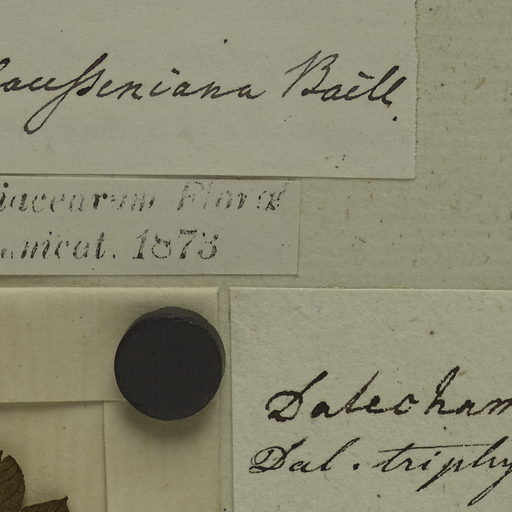 aufseniana Baill.
iacearum Florae
micat. 1873
Dalecham
Dal. triphy